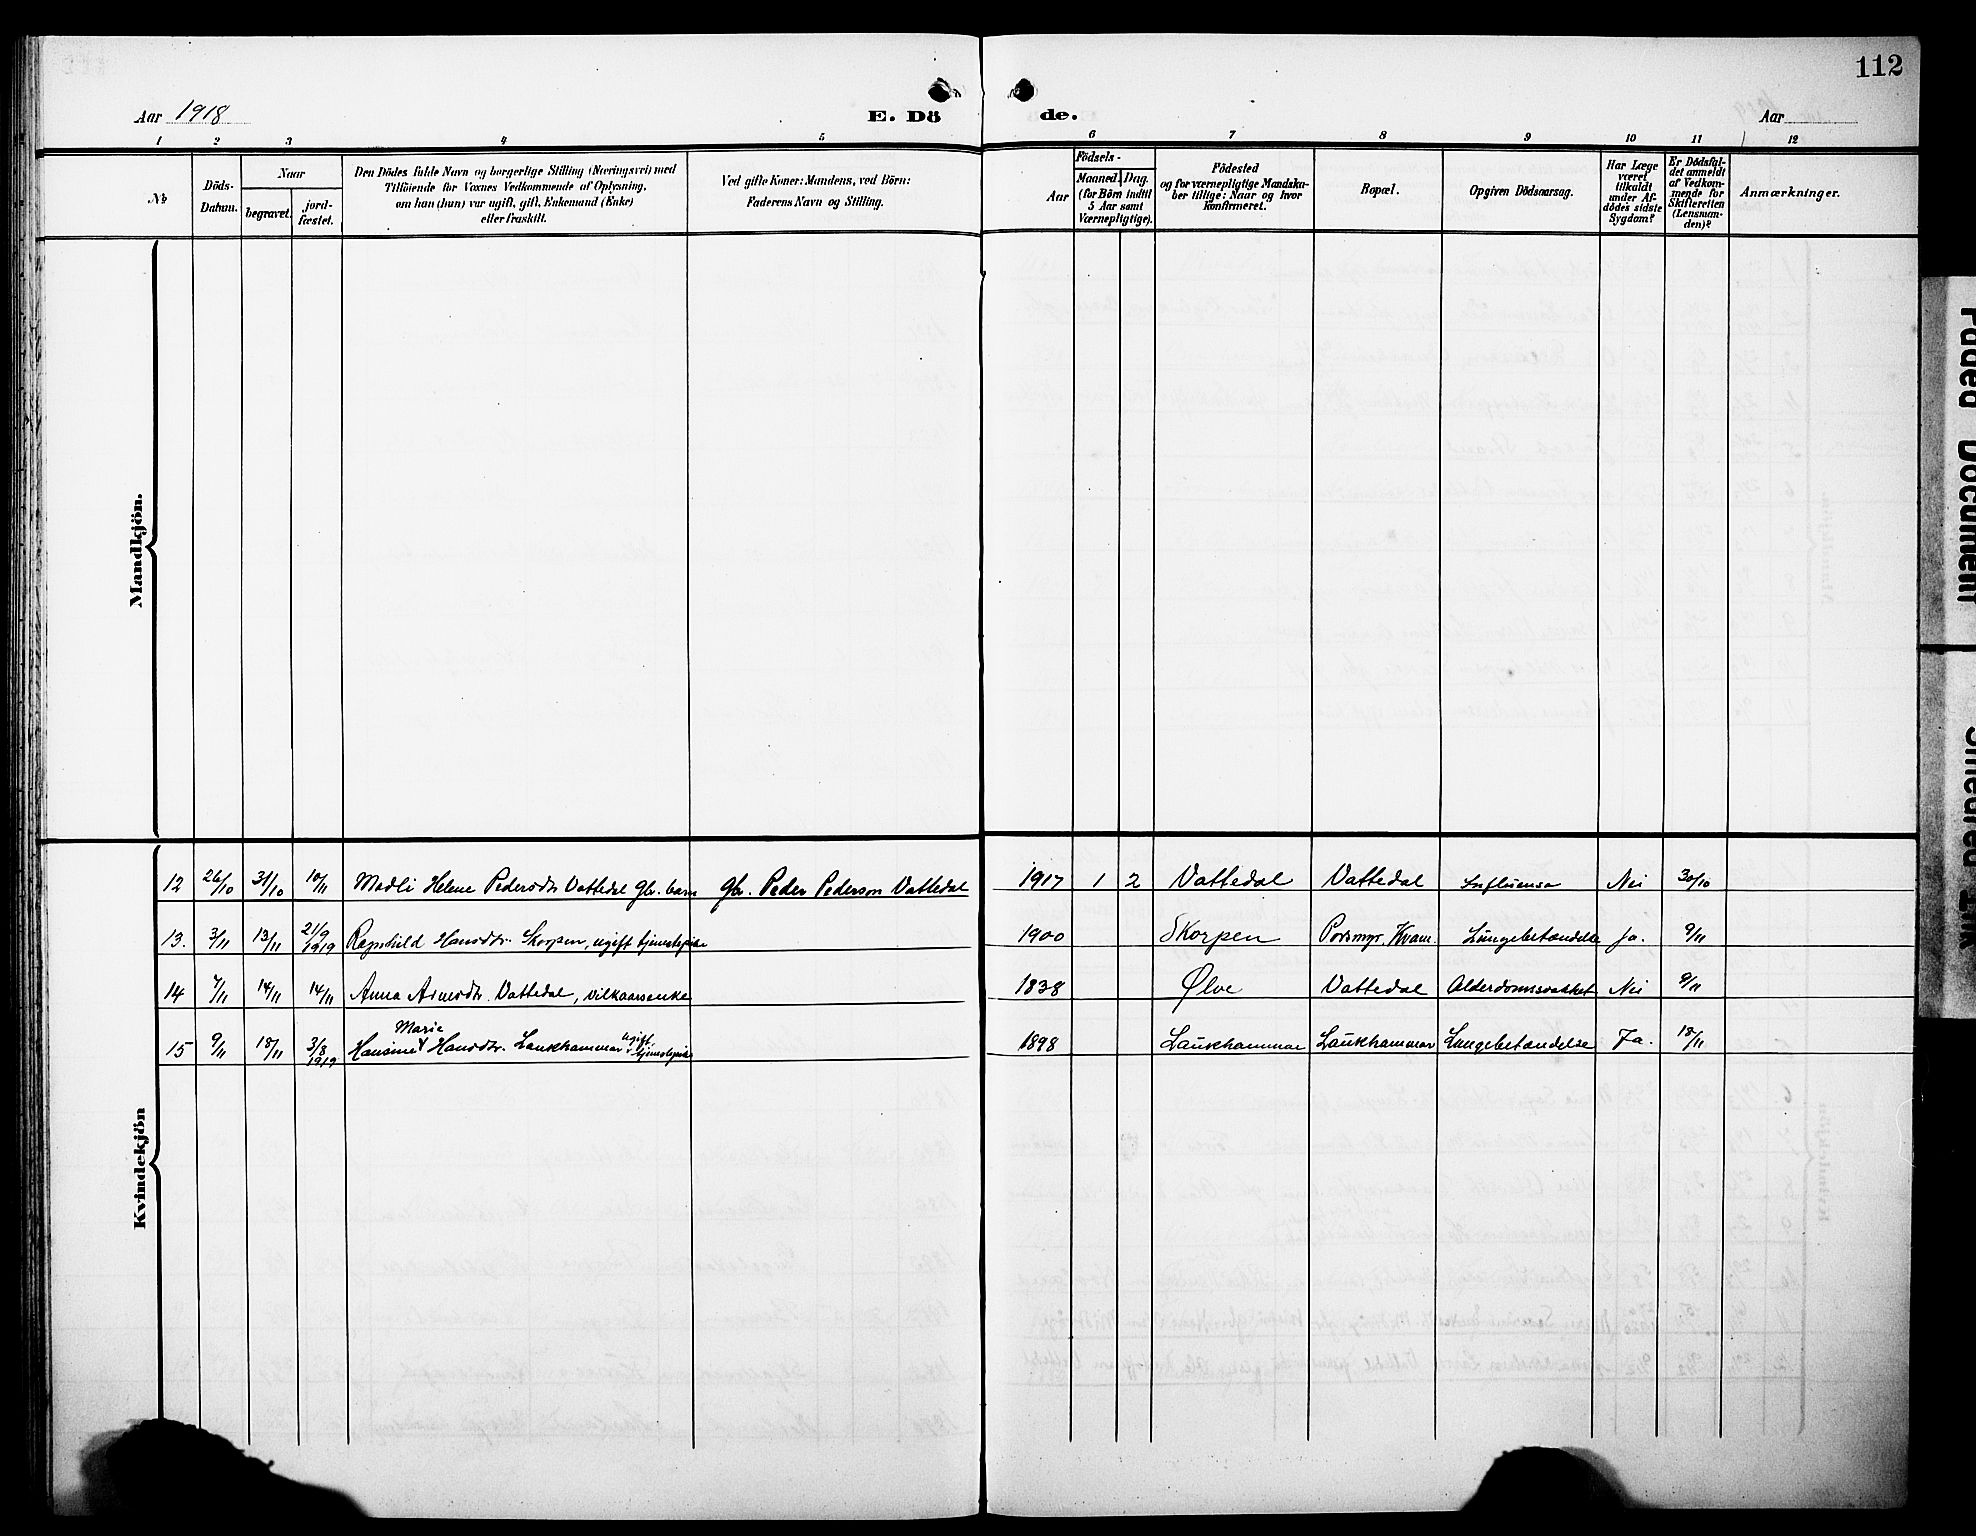 112
Aar 1918
E. Dö
de.
Aar
1 2 3 4 5 6 7 8 9 10 11 12
No
Döds-Datum.
Naar
begravet.
jord-fæstet.
Den Dödes fulde Navn og borgerlige Stilling (Næringsvei) med
Tilföiende for Voxnes Vedkommende af Oplysning,
om han (hun) var ugift, gift, Enkemand (Enke)
eller fraskilt.
Ved gifte Koner: Mandens, ved Börn:
Faderens Navn og Stilling.
Födsels-
Aar
Maaned. Dag.
(for Börn indtil
5 Aar samt
Værnepligtige).
Födested
og for værnepligtige Mandska-
ber tillige: Naar og hvor
konfirmeret.
Bopæl.
Opgiven Dödsaarsag.
Har Læge
været
tilkaldt
under Af-
dödes sidste
Sygdom?
Er Dödsfal-
det anmeldt
af Vedkom-
mende for
Skifteretten
(Lensman-
den)?
Anmærkninger.
Mandkjön.
Kvindekjön
12 26/10 31/10 10/11 Modli Helene Pedersdtr Vattedal Gbr. barn Gbr. Peder Pederson Vattedal 1917 1 2 Vattedal Vattedal Influensa Nei 30/10
13. 3/11 13/11 21/9 1919 Ragnhild Hansdtr. Skorpen, ugift tjenestepike 1900 Skorpen Porsmyr, Kvam. Lungebetændelse Ja. 9/11
14 7/11 14/11 14/11 Anna Arnesdtr. Vattedal, vilkaarsenke 1838 Ølve Vattedal Alderdomssvakket Nei 9/11
15 9/11 18/11 3/8 1919 Hansine Marie Hansdtr. Laukhammar ugift tjenestepike 1898 Laukhammar Laukhammar Lungebetændelse Ja. 18/11
Faded Document
Smeared Ink